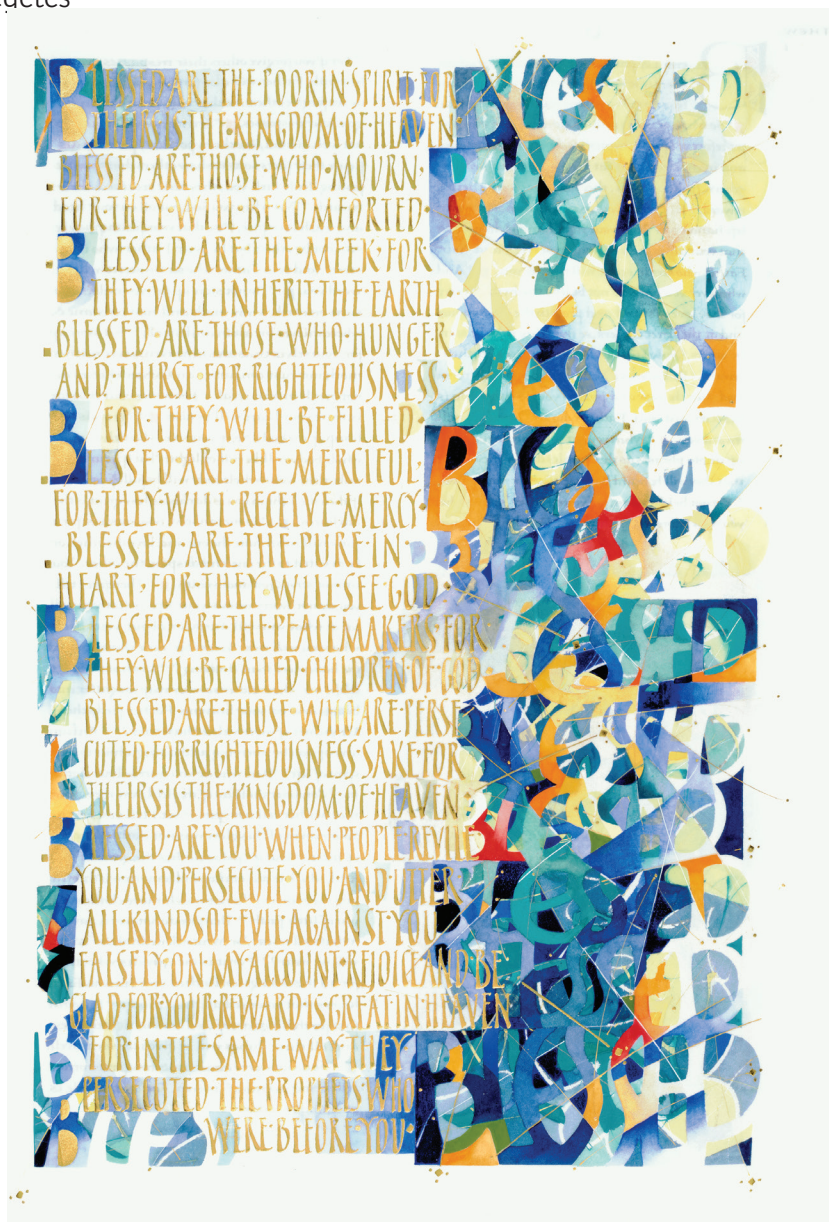 BLESSED·ARE·THE·POOR·IN·SPIRIT·FOR
THEIRS·IS·THE·KINGDOM·OF·HEAVEN·
BLESSED·ARE·THOSE·WHO·MOURN·
FOR·THEY·WILL·BE·COMFORTED·
BLESSED·ARE·THE·MEEK·FOR
THEY·WILL·INHERIT·THE·EARTH
BLESSED·ARE·THOSE·WHO·HUNGER
AND·THIRST·FOR·RIGHTEOUSNESS·
FOR·THEY·WILL·BE·FILLED
BLESSED·ARE·THE·MERCIFUL·
FOR·THEY·WILL·RECEIVE·MERCY
BLESSED·ARE·THE·PURE·IN·
HEART, FOR·THEY·WILL·SEE·GOD
BLESSED·ARE·THE·PEACEMAKERS·FOR
THEY·WILL·BE·CALLED·CHILDREN·OF·GOD
BLESSED·ARE·THOSE·WHO·ARE·PERSE
CUTED·FOR·RIGHTEOUSNESS·SAKE·FOR
THEIRS·IS·THE·KINGDOM·OF·HEAVEN·
BLESSED·ARE·YOU·WHEN·PEOPLE·REVILE
YOU·AND·PERSECUTE·YOU·AND·UTTER
ALL·KINDS·OF·EVIL·AGAINST·YOU
FALSELY·ON·MY·ACCOUNT·REJOICE·AND·BE
GLAD·FOR·YOUR·REWARD·IS·GREAT·IN·HEAVEN
FOR·IN·THE·SAME·WAY·THEY
PERSECUTED·THE·PROPHETS·WHO
WERE·BEFORE·YOU·